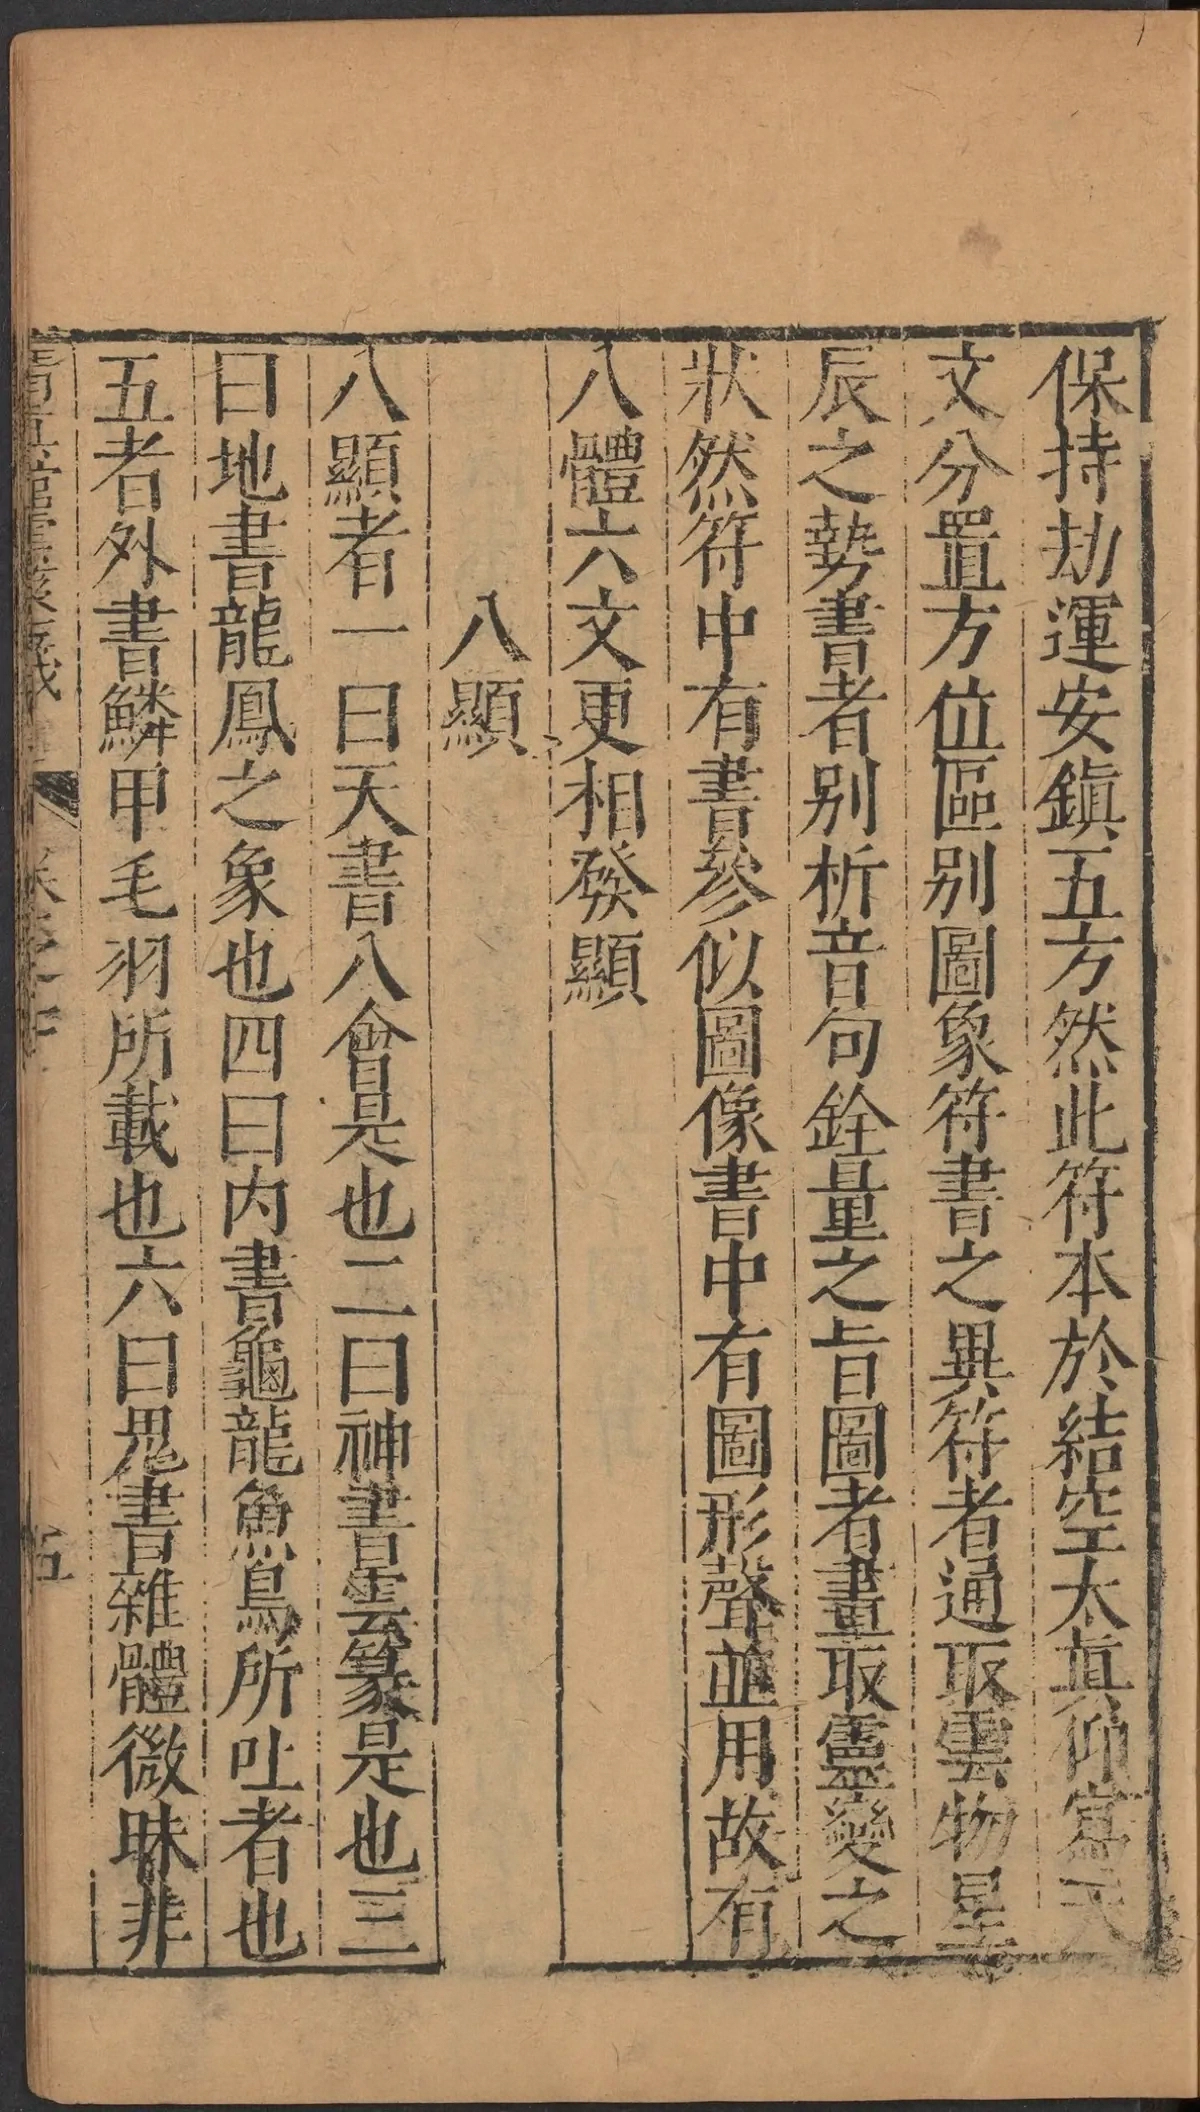 保持劫運安鎮五方然此符本於結空太眞仰寫天
文分置方位區别圖象符書之異符者通取雲物星
辰之勢書者别析音句銓量之旨圖者畫取靈變之
狀然符中有書參似圖像書中有圖形聲並用故有
八體六文更相發顯
八顯
八顯者一曰天書八會是也二曰神書雲篆是也三
曰地書龍鳳之象也四曰内書龜龍魚鳥所吐者也
五者外書鱗甲毛羽所載也六曰鬼書雜體微昧非